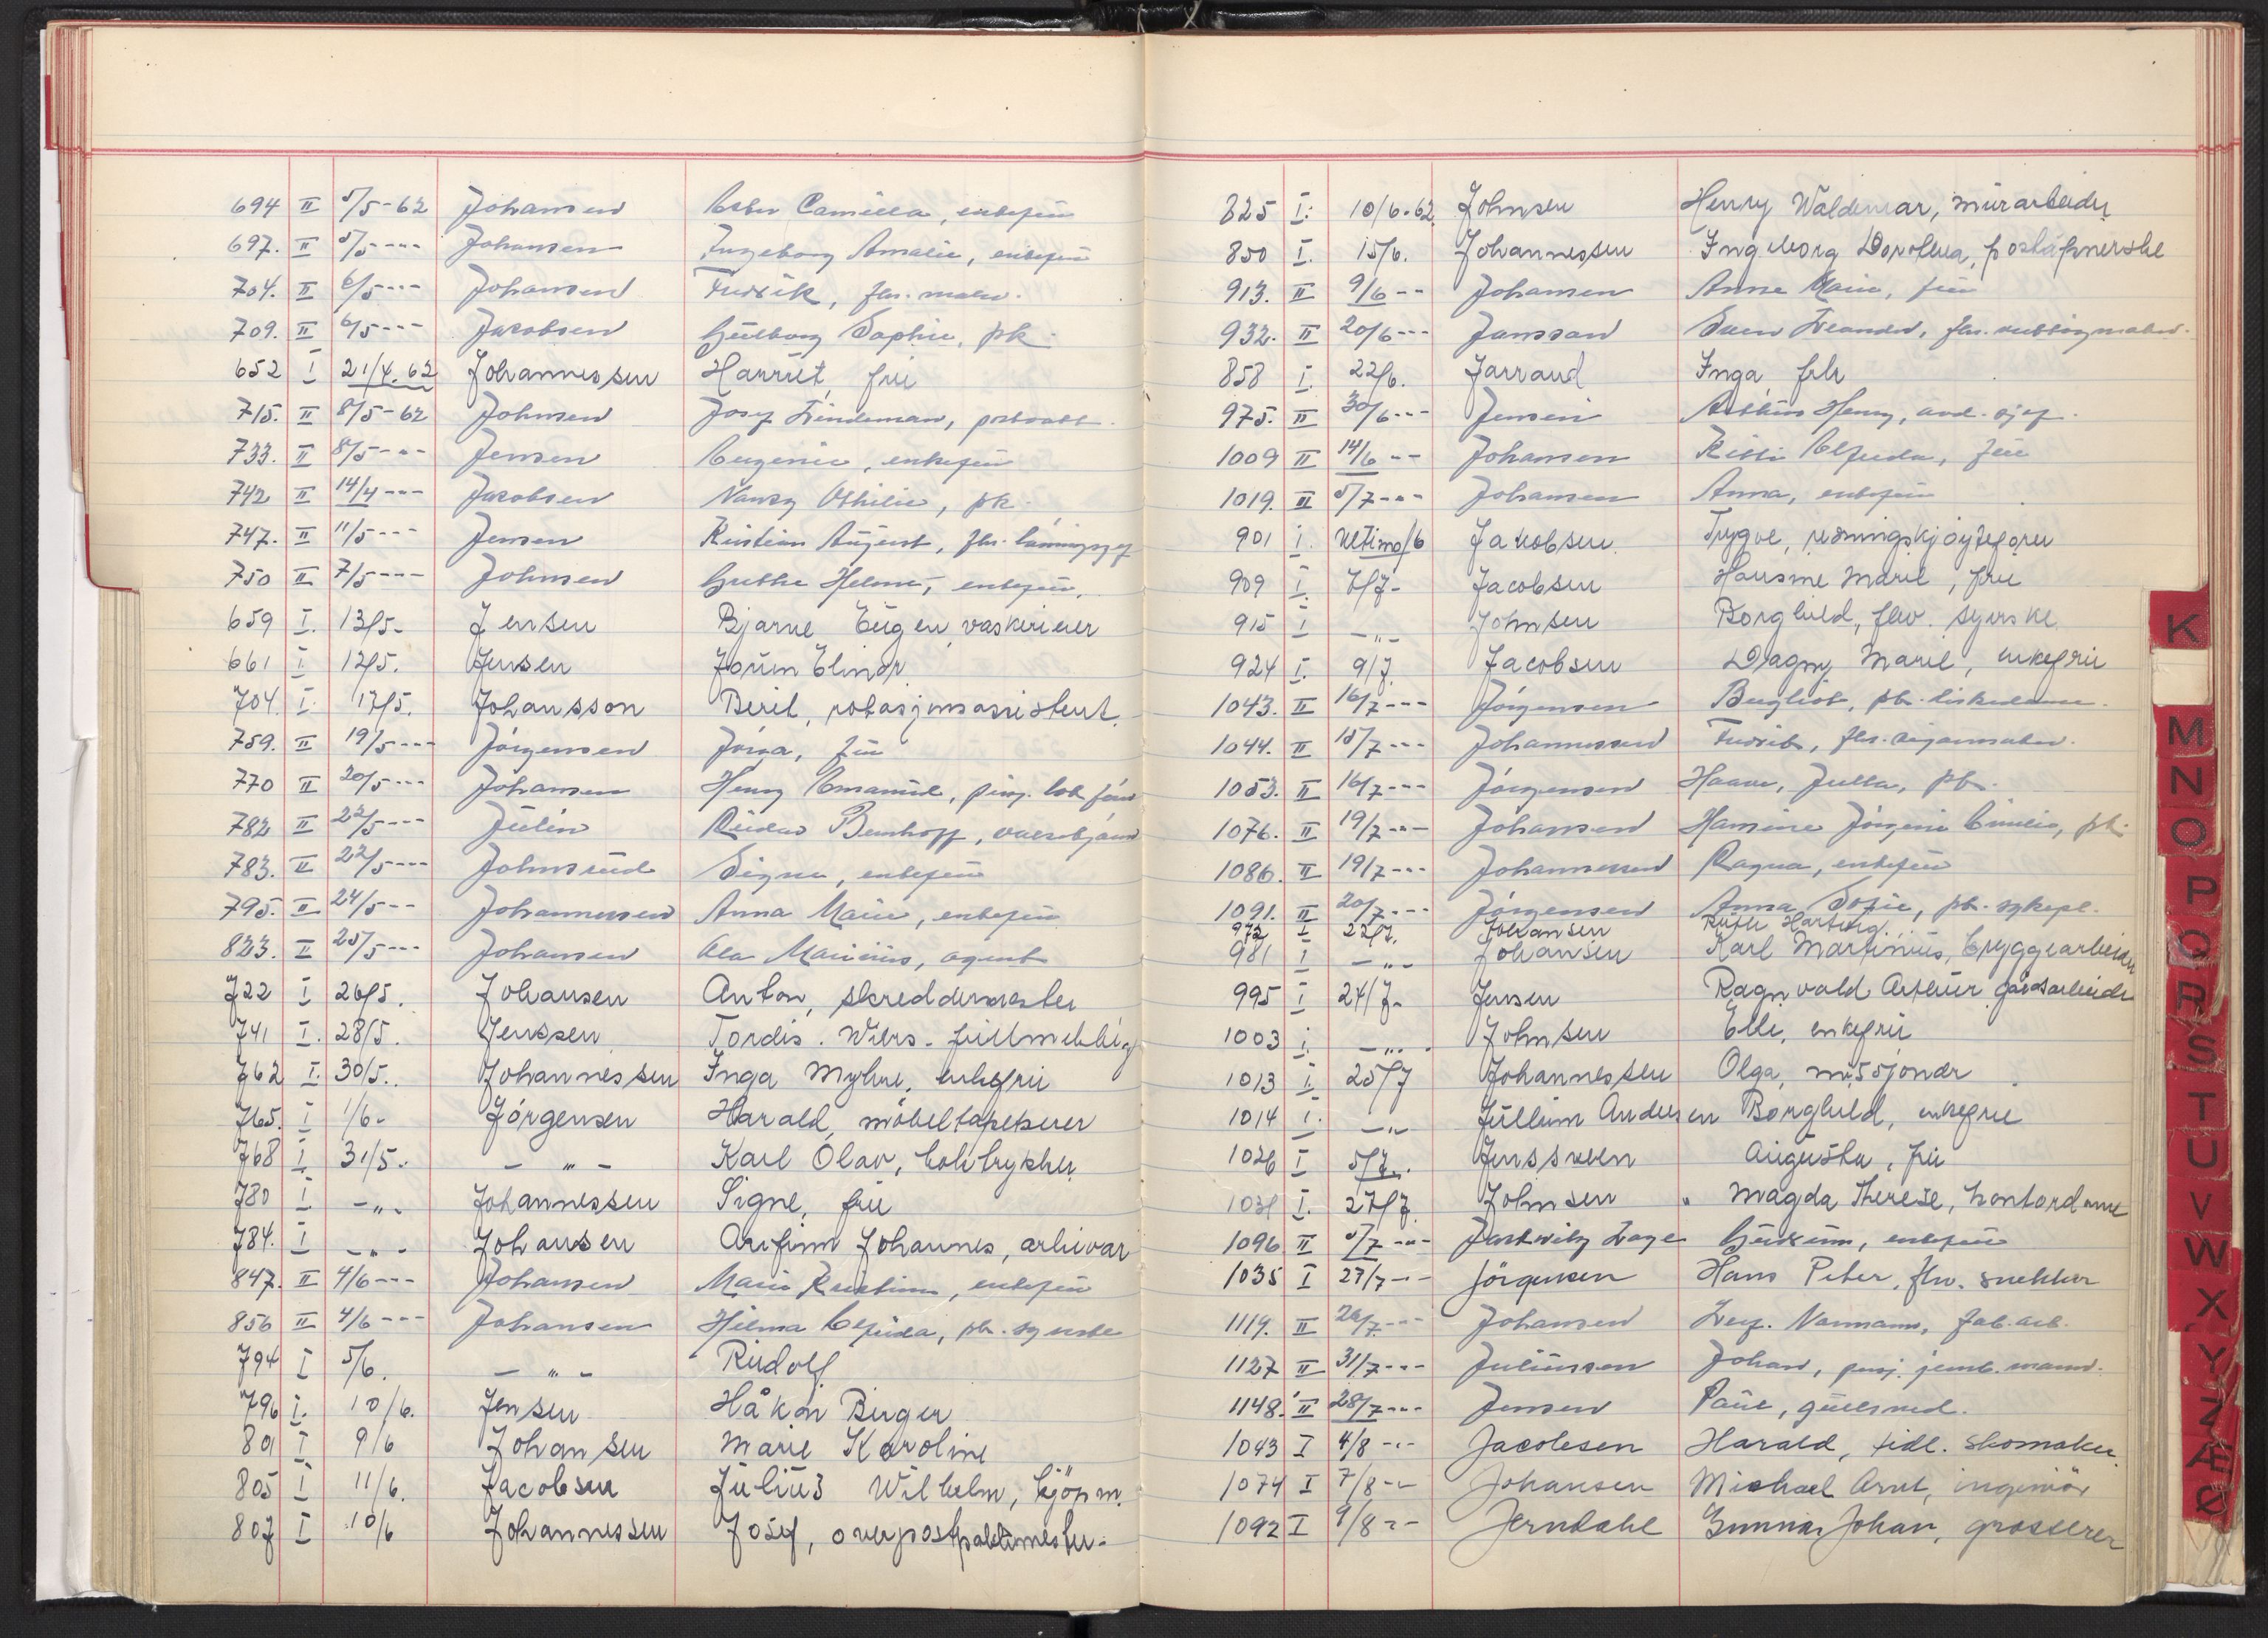 694 II 5/5-62 Johansen Ester Camilla, enkefrü
697. II 5/5 --- Johansen Ingeborg Amalie, enkefrü
704. II 6/5 --- Johansen Fredrik, fhv. maler.
709. II 6/5 --- Jacobsen Gülborg Sophie, pk.
652 I 21/4.62 Johannessen Harriet, frü
715. II 8/5-62 Johnsen Josef Lindeman, postvakt.
733. II 8/5 --- Jensen Eugenie, enkefrü
742 II 14/4 --- Jacobsen Nancy Othilie, pk.
747. II 11/5 --- Jensen Kristian Aügust, fhv.
750 II 7/5 --- Johnsen Grethe Helene, enkefrü.
659 I. 13/5. Jensen Bjarne Eügen, vaskerieier
661 I 12/5. Jensen Jorün Elinor
704. I. 17/5. Johansson Beril, rotasjonsassistent.
759. II 19/5 --- Jörgensen Jörga, frü
770 II 20/5 --- Johansen Henry Emanuel, pinj. lok.fører
782 II 22/5 --- Jülin Reidar Bernhoff,
783. II 22/5 ---- Johnsrüd Signe, enkefrü
795. II 24/5 -- Johannessen Anna Marie, enkefrü
823. II 25/5 --- Johansen Ole Marinius, agent
722 I 26/5. Johansen Anton, skreddermester
741 I. 28/5. Jenssen Tordis. Wiers. füllmektig
762 I. 30/5.. Johannessen Inga Myhre, enkefrü
765. I 1/6- Jörgensen Harald, möbeltapetserer
768 I 31/5. - " - Karl Olav, boktrykker
780 I - " - Johannessen Signe, frü
784. I - " - Johansen Arnfinn Johannes, arkivar
847. II 4/6 --- Johansen Marie Kristine, enkefrü
856 II 4/6 --- Johansen Hilma Elfrida, pk. syerske
794 I 5/6. - " - Rüdolf
796 I. 10/6. Jensen Håkon Birger
801 I 9/6 Johansen Marie Karoline
805 I 11/6. Jacobsen Jülius Wilhelm, kjöpm.
807 I 10/6 Johannessen Josef, overpostpakkmester.
825 I. 10/6-62 Johnsen Henry Waldemar, mürarbeider
850 I. 15/6. Johannessen Ingeborg Dorothea, poståpnerske
913. II 9/6 -- Johansen Anne Marie, frü
932. II 20/6 --- Jansson Sven Leander, fhv.
858 I. 22/6. Jarraud Inga, frk
975. II 30/6 --- Jensen Henry, avd. sjef.
1009 II 14/6 -- Johansen Kitti Elfrida, frü
1019. II 5/7 --- Johansen Anna, enkefrü
901 I. Ultimo/6 Jakobsen Trygve, redningskjöytefører
909 I. 7/7- Jacobsen Hansine Marie, frü
915 I - " - Johnsen Borghild, fhv. syerske
924 I. 9/7. Jacobsen Dagny Marie, enkefrü
1043. II 16/7 --- Jörgensen Bergliot, pk.
1044. II 15/7 --- Johannessen Fredrik, fhv. sigarmaker.
1053. II 16/7 --- Jörgensen Haave, Julla, pk.
1076. II 19/7 --- Johansen Hansine Jörgine Emilie, pk.
1086. II 19/7 --- Johannessen Ragna, enkefrü
1091. II 20/7 --- Jörgensen Anna Sofie, pk. sykepl.
972 I 22/7. Johansen Rüth Hartvig
981 I - " - Johansen Karl Martinius, bryggearbeider
995 I 24/7- Jensen Ragnvald Arthür, gårdsarbeider
1003 I. - " - Johnsen Elli, enkefrü
1013 I. 25/7 Johannessen Olga, missjonær
1014 I. - " - Jüllum Andersen Borghild, enkefrue
1026 I 5/7.. Jenssveen Aügusta, frü
1031 I. 27/7 Johnsen Magda Therese, kontordame
1096 II 5/7 --- Lage enkefrü
1035 I 27/7 -- Jörgensen Hans Peter, fhv. snekker
1119. II 26/7 --- Johansen Leif Normann, fab.arb.
1127 II 31/7 --- Juliussen Johan, pinj. jernb.mann.
1148. II 28/7 --- Jensen Paül, güllsmed.
1043 I 4/8 -- Jacobsen Harald, tidl. skomaker
1074 I 7/8 -- Johansen Michael Arnt, ingeniör
1092 I 9/8 -- Jerndahl Gunnar Johan, grosserer
K
M
N
O
P
Q
R
S
T
U
V
W
X
Y
Z
Æ
Ø